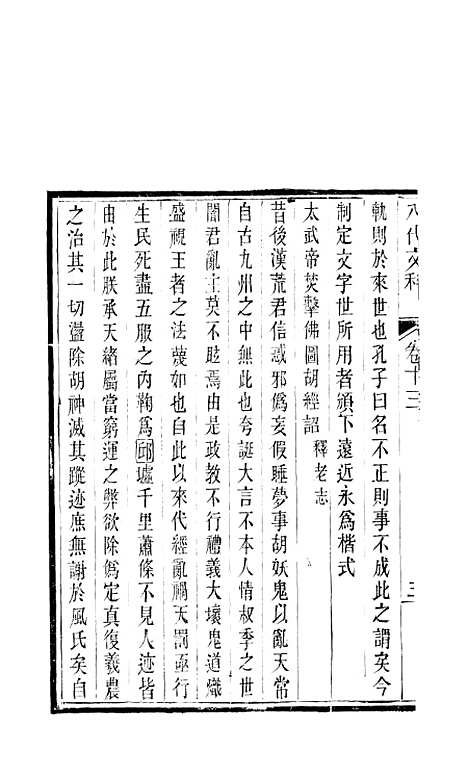 八代文粹 卷十三 三
軌則於來世也孔子曰名不正則事不成此之謂矣今
制定文字世所用者頒下遠近永爲楷式
太武帝焚擊佛圖胡經詔 釋老志
昔後漢荒君信惑邪僞妄假睡夢事胡妖鬼以亂天常
自古九州之中無此也夸誕大言不本人情叔季之世
闇君亂主莫不眩焉由是政教不行禮義大壞鬼道熾
盛視王者之法蔑如也自此以來代經亂禍天罰亟行
生民死盡五服之內鞠爲邱墟千里蕭條不見人迹皆
由於此朕承天緒屬當窮運之弊欲除僞定真復羲農
之治其一切盪除胡神滅其蹤迹庶無謝於風氏矣自